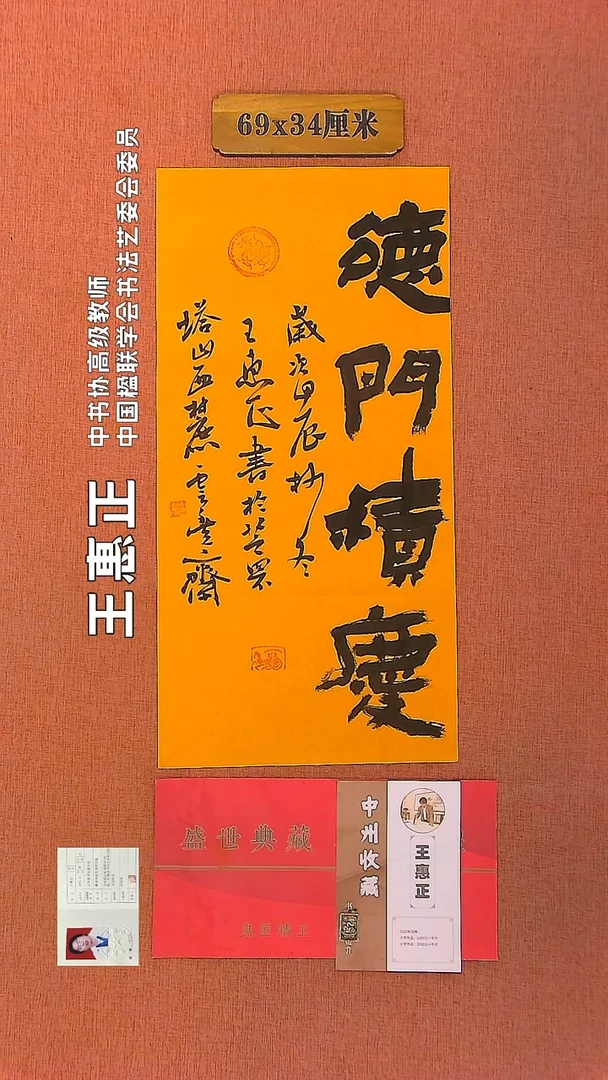 69x34厘米
德門積慶
歲次甲辰抄冬
王惠正書於芒果
塔山西麓雲貴之齋
中书协高级教师
中国楹联学会书法艺委会委员
王惠正
盛世典藏
中州收藏
王惠正